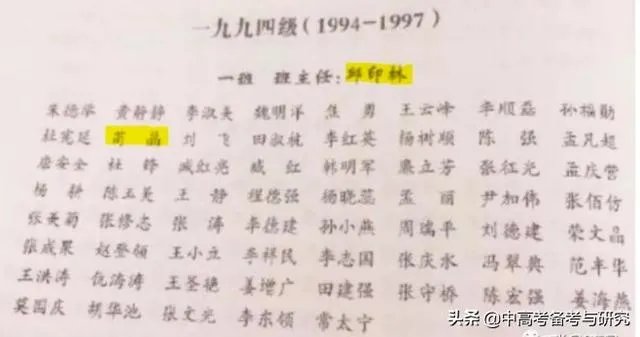 一九九四级(1994-1997)
一班 班主任:邱印林
朱德华 黄静静 李淑美 魏明洋 焦勇 王云峰 李顺磊 孙福勋
杜宪廷 苟晶 刘飞 田淑杭 李红英 杨树顺 陈强 孟凡超
唐安全 杜锋 臧红光 臧红 韩明军 秉立芳 张红光 孟庆营
杨耕 陈玉美 王静 程德强 杨晓蕊 孟丽 尹加伟 张佰仿
张美菊 张修志 张涛 李德建 孙小燕 周瑞平 刘德建 荣文晶
张成果 赵登领 王小立 李祥民 李志国 张庆水 冯翠典 范丰华
王洪涛 仇海涛 王圣艳 姜增广 田建强 张守桥 陈宏强 姜海燕
莫国庆 胡华池 张文光 李东领 常太宁
头条@中高考备考与研究